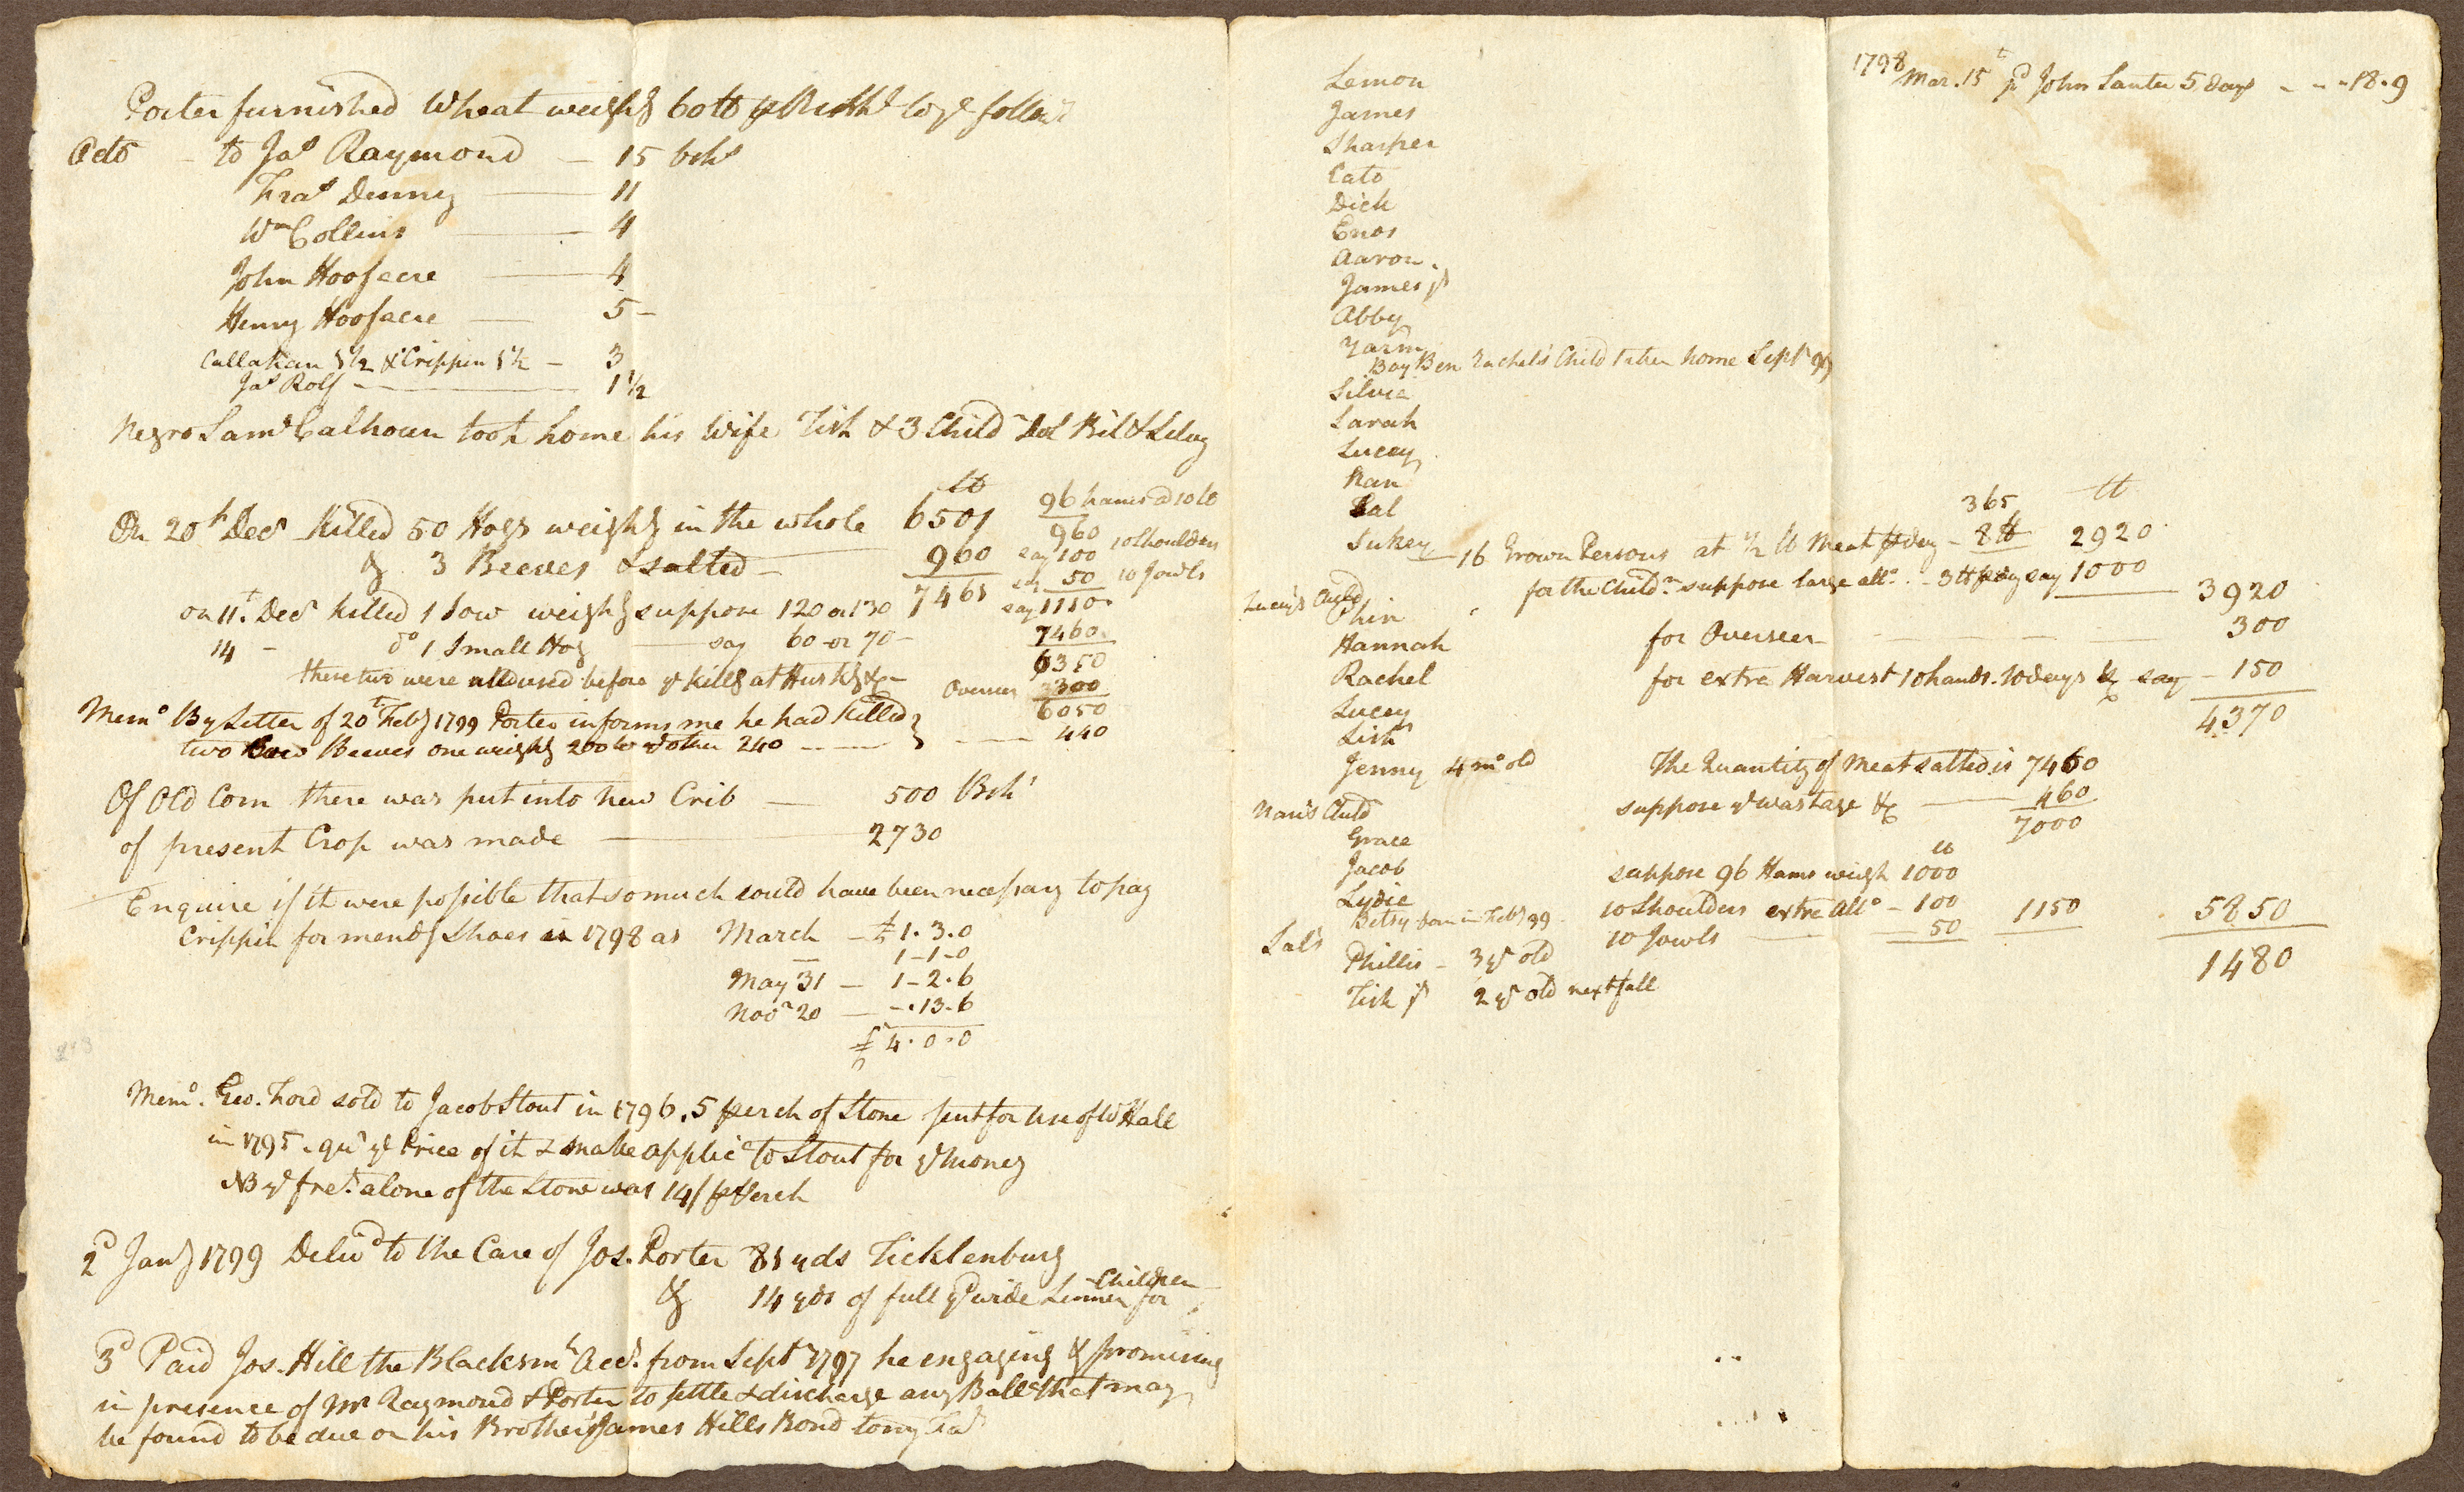 Porter furnished Wheat weighg 60 lb ⅌ Bushl to ye follow.g
Octo – to Jas Raymond – 15 bshs
Fras Denney — 11
Wm Collins — 4
John Hoofacre — 4
Henry Hoofacre — 5 –
Callahan 1½ & Crippin 1½ – 3
Jas Rolf — 1½
Negro Saml Calhoun took home his Wife Tish & 3 Childn Sol Bil &
On 20th Decr Killed 50 Hogs weighg in the whole 6501
lb
& 3 Beeves & salted – 960
7461
96 hams @ 10 lb
960
say 100 10 Shoulders
say 50 10 Jowls
say 1110
7460
6350
Overseer 300
6050
440
on 11t. Decr Killed 1 Sow weighg suppose 120 or 130
14 – do 1 Small Hog — say 60 or 70 –
these two were all used before ye killg at Huskg &c –
Memo By Letter of 20t Feby 1799 Porter informs me he had killed
two Beeves one weighg 200 lb & other 240 — —
Of Old Corn there was put into new Crib — 500 Bshs
of present Crop was made — 2730
Enquire if it were possible that so much could have been necessary to pay
Crippin for mendg Shoes in 1798 as March – £ 1.3.0
— 1-1-0
May 31 — 1-2.6
Novr 20 — -.13.6
£ 4.0.0
Memo. Geo. Ford sold to Jacob Stout in 1796. 5 perch of Stone sent for use of W Hall
in 1795. qur ye Price of it & make applicn to Stout for ye Money
NB ye fret. alone of the Stone was 14/ ⅌ Perch
2d Jany 1799 Delivd to the Care of Jos. Porter 81 yds Ticklenburg
& 14 yds of full yd wide Linnen for Children
3d Paid Jos. Hill the Blacksmh Acct. from Septr 1797 he engaging & promising
in presence of Mr Raymond & Porter to settle & discharge any Balle that may
be found to be due on his Brother James Hills Bond to my
Lemon
James
Sharper
Cato
Dick
Enos
Aaron.
James yr
Abby
Yarm
Boy Ben Rachel's Child taken home Septr
Silvia
Sarah
Lucey
Nan
Sal
Sukey — 16 Grown Persons at ½ lb Meat ⅌ day – 8 lb 2920
365 lb
for the Childn suppose large allo. – 3 lb ⅌ day say 1000
3920
Lucey's Child
Phin
Hannah
Rachel
Lucey
Jenny 4 mo old
for Overseer — 300
for extra Harvest 10 hands. 10 days &c say – 150
4370
The Quantity of Meat salted is 7460
suppose ye wastage &c — 460
7000
Nan's Child
Grace
Jacob
Lydie
Betsy born in Feby 99
Sal's
Phillis – 3 yr old
Tish yr 2 yr old next fall
lb
suppose 96 Hams weigh 1000
10 Shoulders extra allo – 100
10 Jowls — 50 1150
5850
1480
1798
Mar. 15t pd John Santer 5 days - - - 18.9